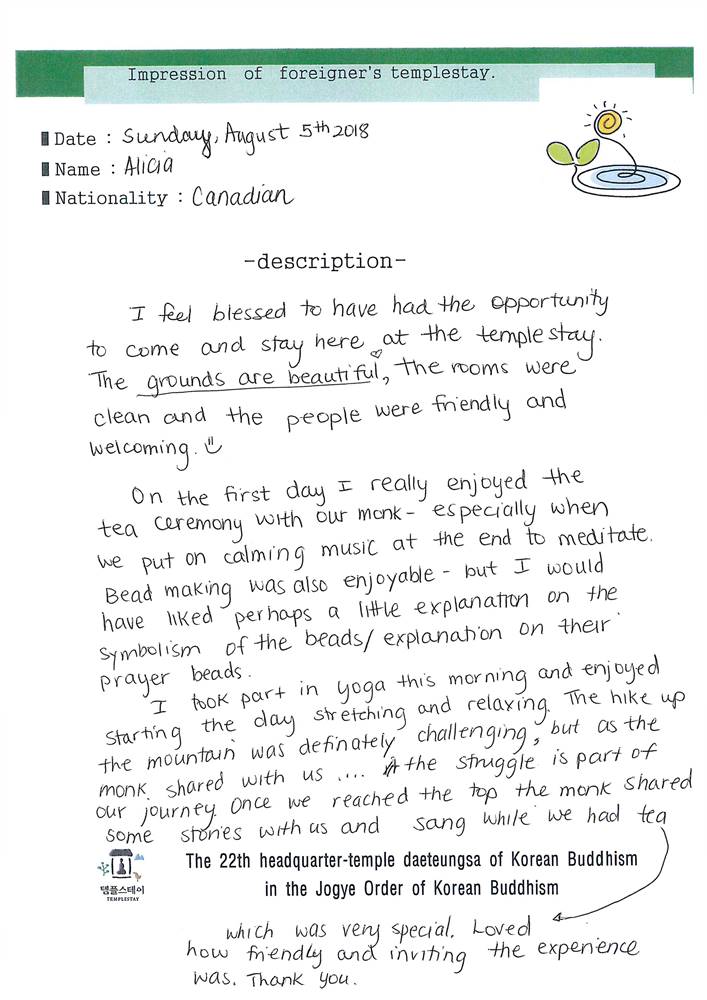 Impression of foreigner's templestay.
Date : Sunday, August 5th 2018
Name : Alicia
Nationality : Canadian
-description-
I feel blessed to have had the opportunity
to come and stay here at the temple stay.
The grounds are beautiful, the rooms were
clean and the people were friendly and
welcoming.
On the first day I really enjoyed the
tea ceremony with our monk - especially when
we put on calming music at the end to meditate.
Bead making was also enjoyable - but I would
have liked perhaps a little explanation on the
symbolism of the beads/explanation on their
prayer beads.
I took part in yoga this morning and enjoyed
starting the day stretching and relaxing. The hike up
the mountain was definately challenging, but as the
monk shared with us .... the struggle is part of
our journey. Once we reached the top the monk shared
some stories with us and sang while we had tea
템플스테이
TEMPLESTAY
The 22th headquarter-temple daeteungsa of Korean Buddhism
in the Jogye Order of Korean Buddhism
which was very special. Loved
how friendly and inviting the experience
was. Thank you.